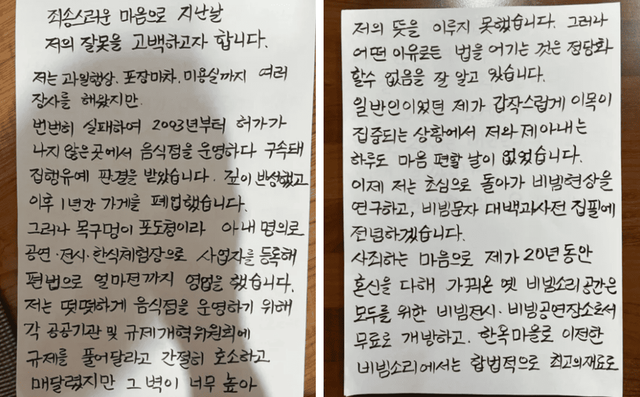 죄송스러운 마음으로 지난날
저의 잘못을 고백하고자 합니다.
저는 과일행상, 포장마차, 미용실까지 여러
장사를 해왔지만
번번히 실패하여 2003년부터 허가가
나지 않은곳에서 음식점을 운영하다 구속돼
집행유예 판결을 받았습니다. 깊이 반성했고
이후 1년간 가게를 폐업했습니다.
그러나 목구멍이 포도청이라 아내 명의로
공연·전시·한식체험장으로 사업자를 등록해
편법으로 얼마전까지 영업을 했습니다.
저는 떳떳하게 음식점을 운영하기 위해
각 공공기관 및 규제개혁위원회에
규제를 풀어달라고 간절히 호소하고
매달렸지만 그 벽이 너무 높아
저의 뜻을 이루지 못했습니다. 그러나
어떤 이유로든 법을 어기는 것은 정당화
할수 없음을 잘 알고 있습니다.
일반인이었던 제가 갑작스럽게 이목이
집중되는 상황에서 저와 제아내는
하루도 마음 편할 날이 없었습니다.
이제 저는 초심으로 돌아가 비빔현상을
연구하고, 비빔문자 대백과사전 집필에
전념하겠습니다.
사죄하는 마음으로 제가 20년 동안
혼신을 다해 가꿔온 옛 비빔소리 공간은
모두를 위한 비빔전시·비빔공연장소로서
무료로 개방하고. 한옥마을로 이전한
비빔소리에서는 합법적으로 최고의재료로